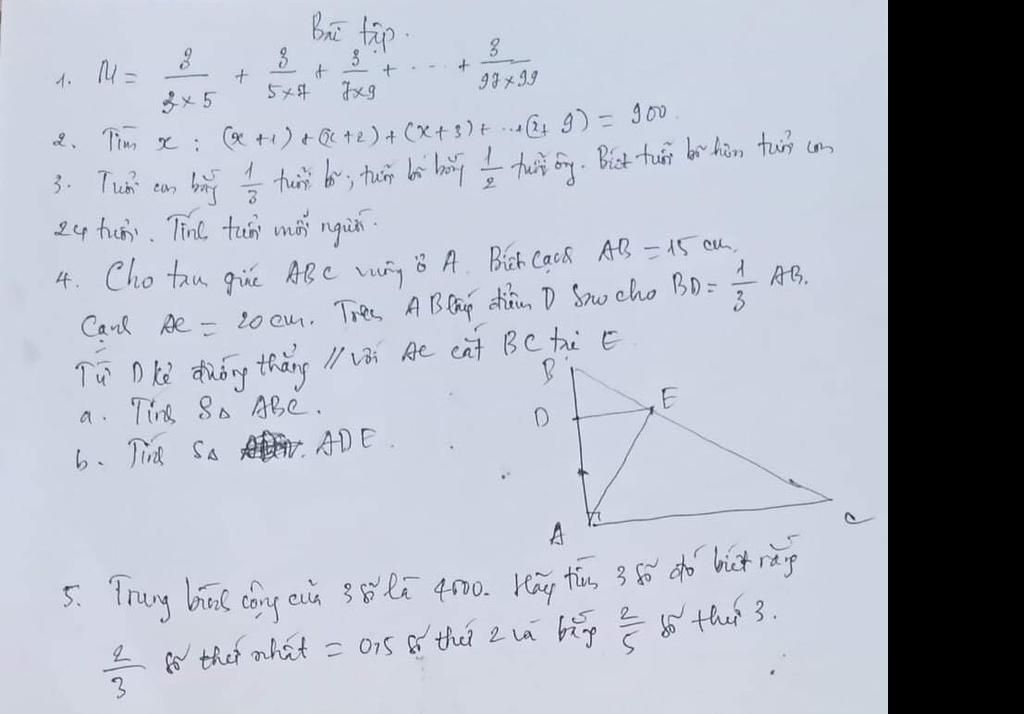 Bài tập.
1. M = 3/(3×5) + 3/(5×7) + 3/(7×9) + ... + 3/(97×99)
2. Tìm x : (x+1) + (x+2) + (x+3) + ...(x+ 9) = 900.
3. Tuổi con bằng 1/3 tuổi bố; tuổi bố bằng 1/2 tuổi ông. Biết tuổi bố hơn tuổi con
24 tuổi. Tính tuổi mỗi người.
4. Cho tam giác ABC vuông ở A. Biết cạnh AB = 15 cm.
Cạnh AC = 20 cm. Trên AB lấy điểm D sao cho BD = 1/3 AB.
Từ D kẻ đường thẳng // với AC cắt BC tại E
a. Tính S△ ABC.
b. Tính S△ ADE.
B
D
E
A
C
5. Trung bình cộng của 3 số là 4600. Hãy tìm 3 số đó biết rằng
2/3 số thứ nhất = 0,5 số thứ 2 và bằng 2/5 số thứ 3.